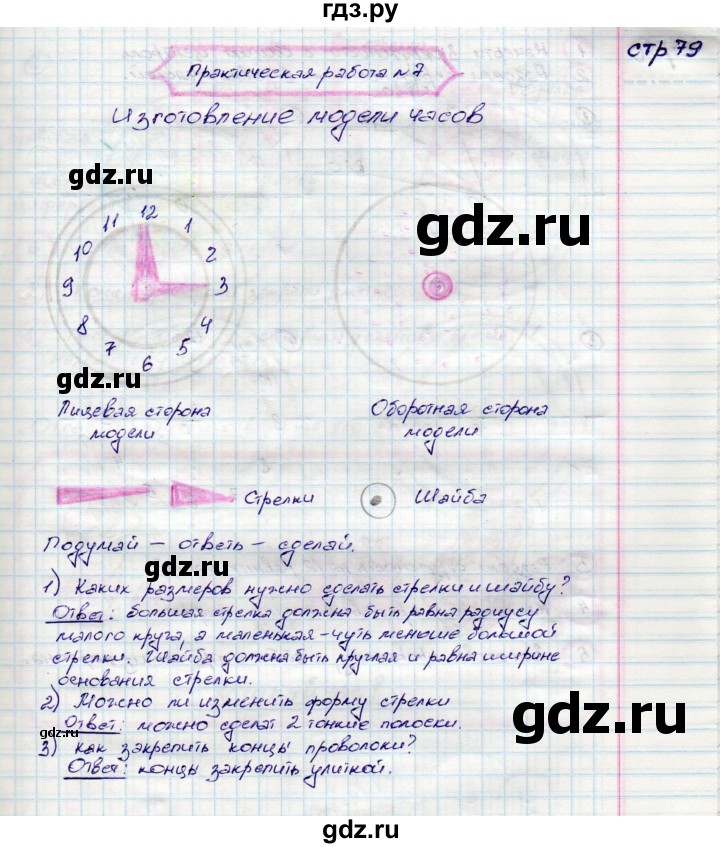 гдз.ру
стр 79
Практическая работа №7
Изготовление модели часов
gdz.ru
gdz.ru
12
11 1
10 2
9 3
8 4
7 5
6
gdz.ru
Лицевая сторона
модели
Оборотная сторона
модели
Стрелки
Шайба
gdz.ru
Подумай – ответь – сделай.
gdz.ru
1) Каких размеров нужно сделать стрелки и шайбу?
Ответ: большая стрелка должна быть равна радиусу
малого круга, а маленькая – чуть меньше большой
стрелки. Шайба должна быть круглая и равна ширине
основания стрелки.
2) Можно ли изменить форму стрелки
Ответ: можно сделат 2 тонкие полоски.
gdz.ru
3) Как закрепить концы проволоки?
gdz.ru
Ответ: концы закрепить улиткой.
gdz.ru